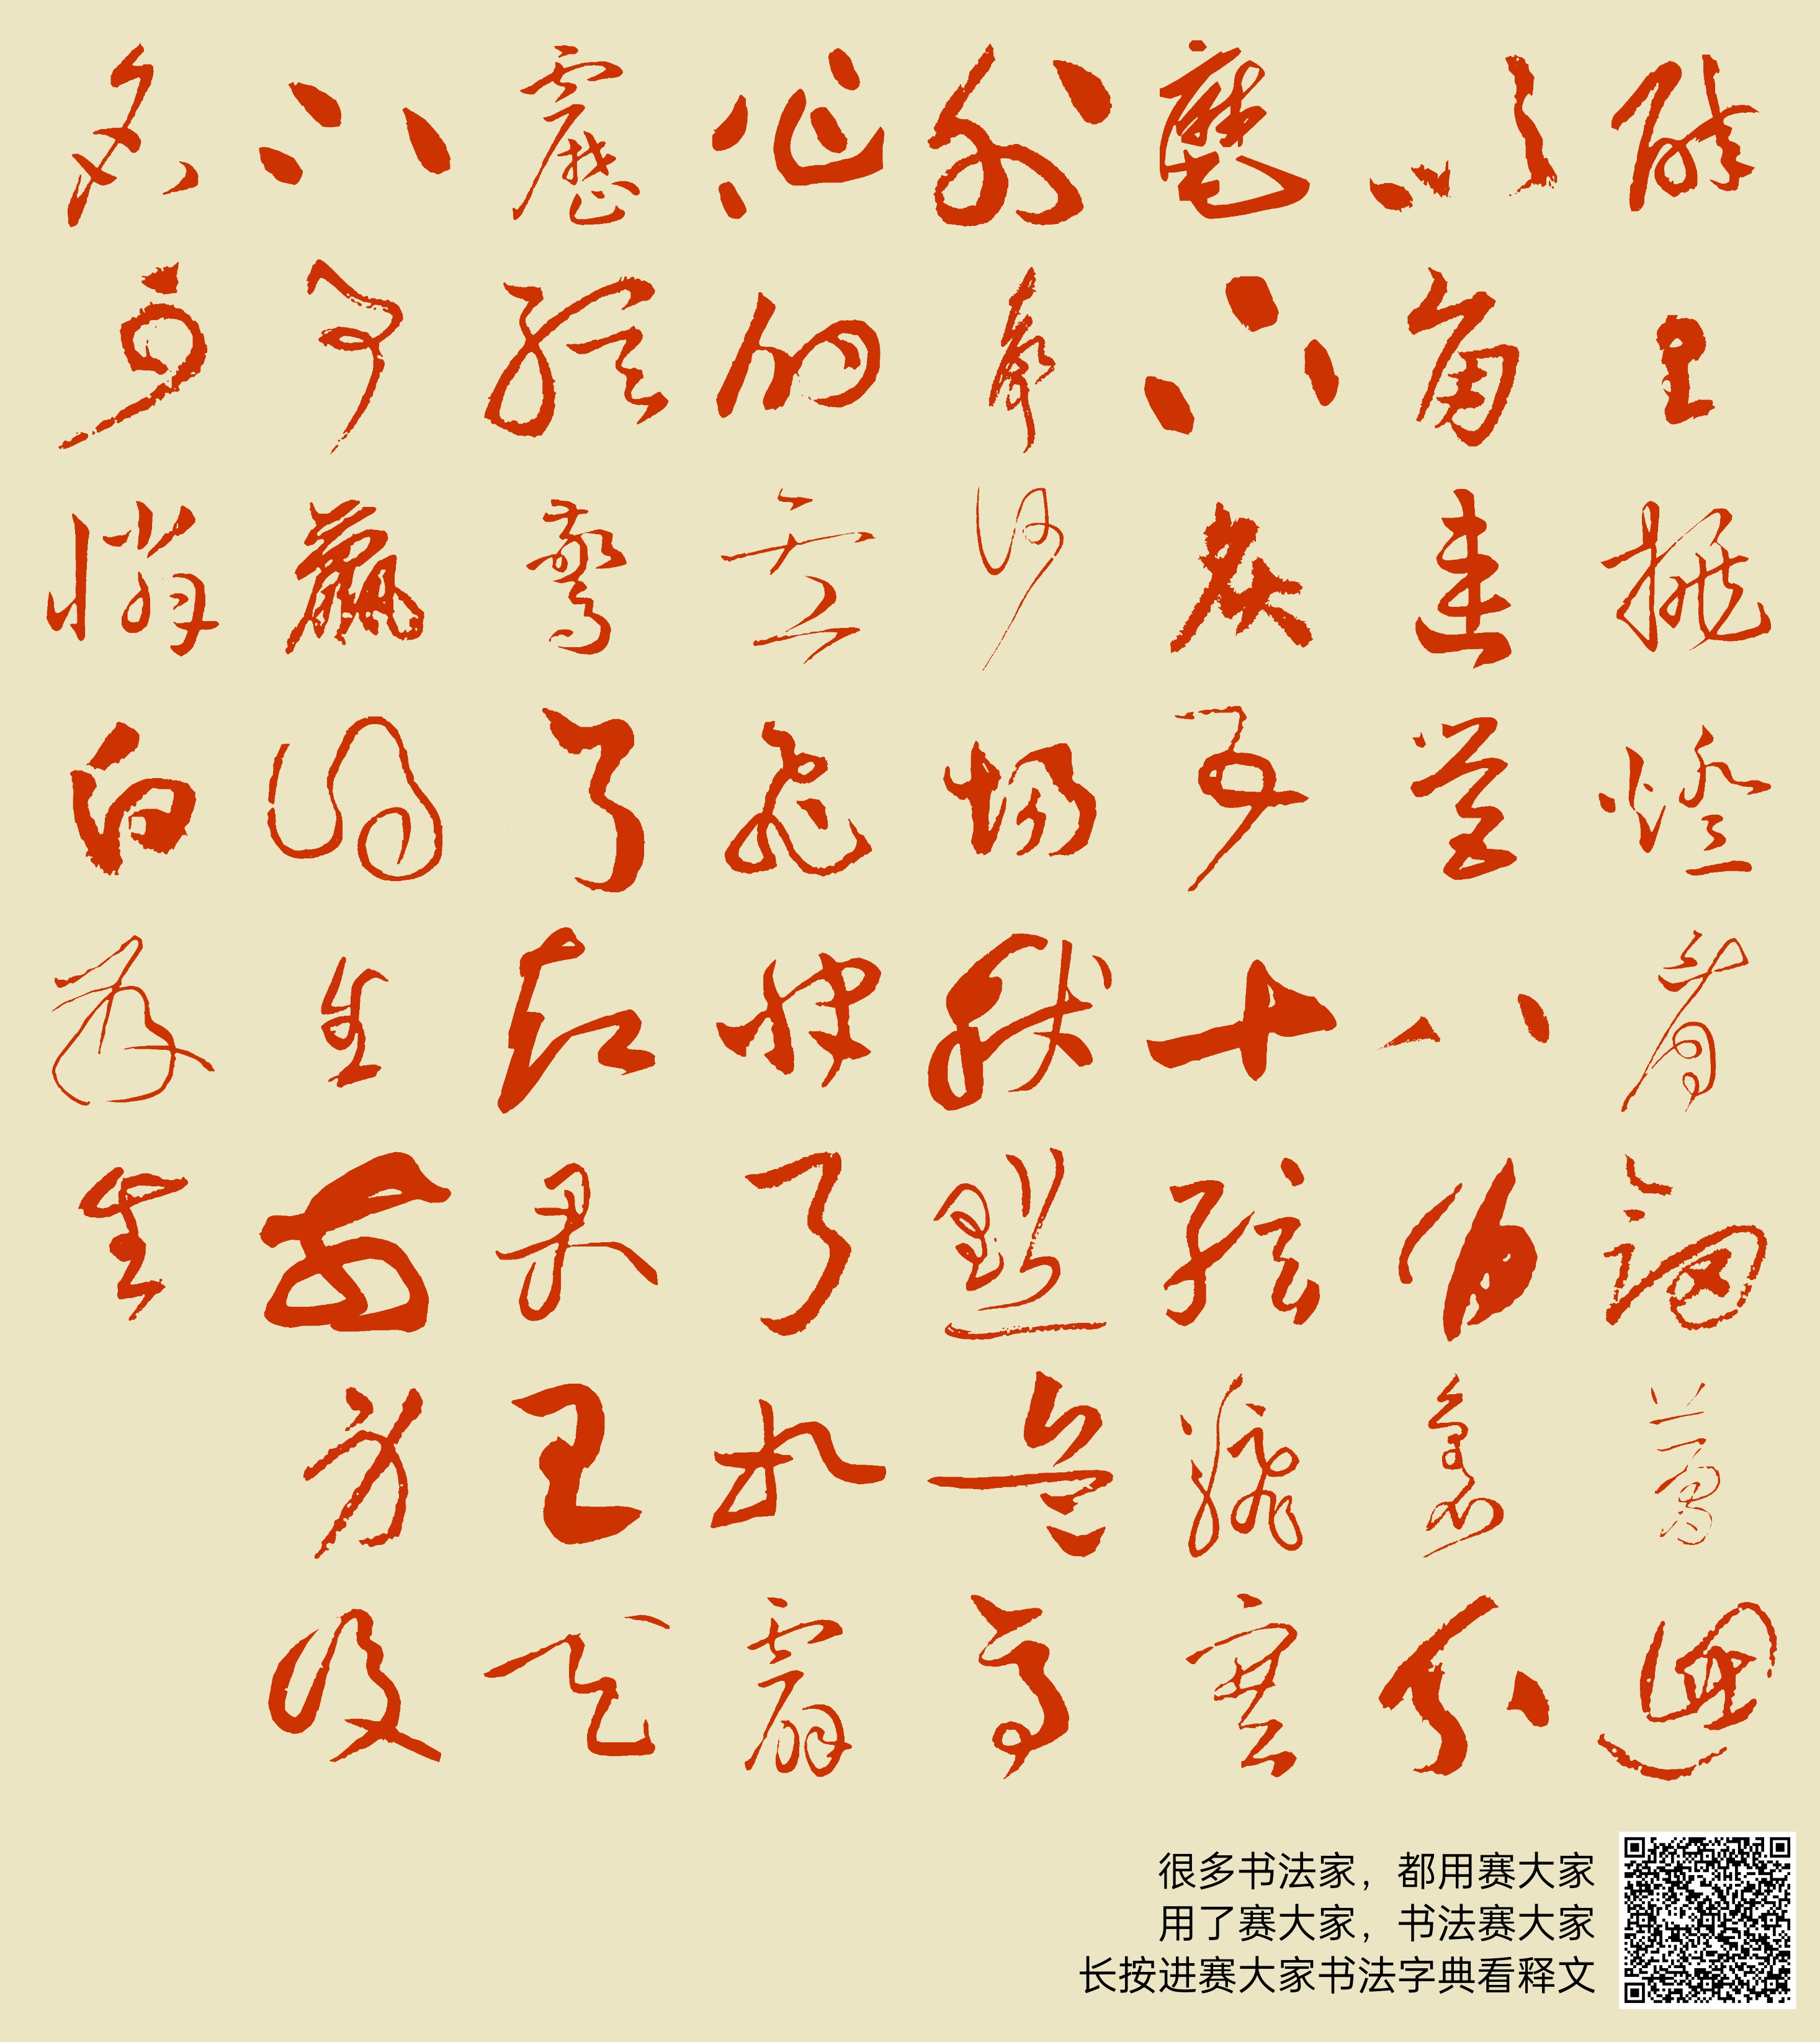 醉里挑燈看劍夢迴
吹角連營八百裏分
麾下炙五十弦翻塞
外聲沙場秋點兵馬
作的盧飛快弓如霹
靂弦驚了却君王天
下事贏得生前身後
名可憐白髮生
很多书法家，都用赛大家
用了赛大家，书法赛大家
长按进赛大家书法字典看释文